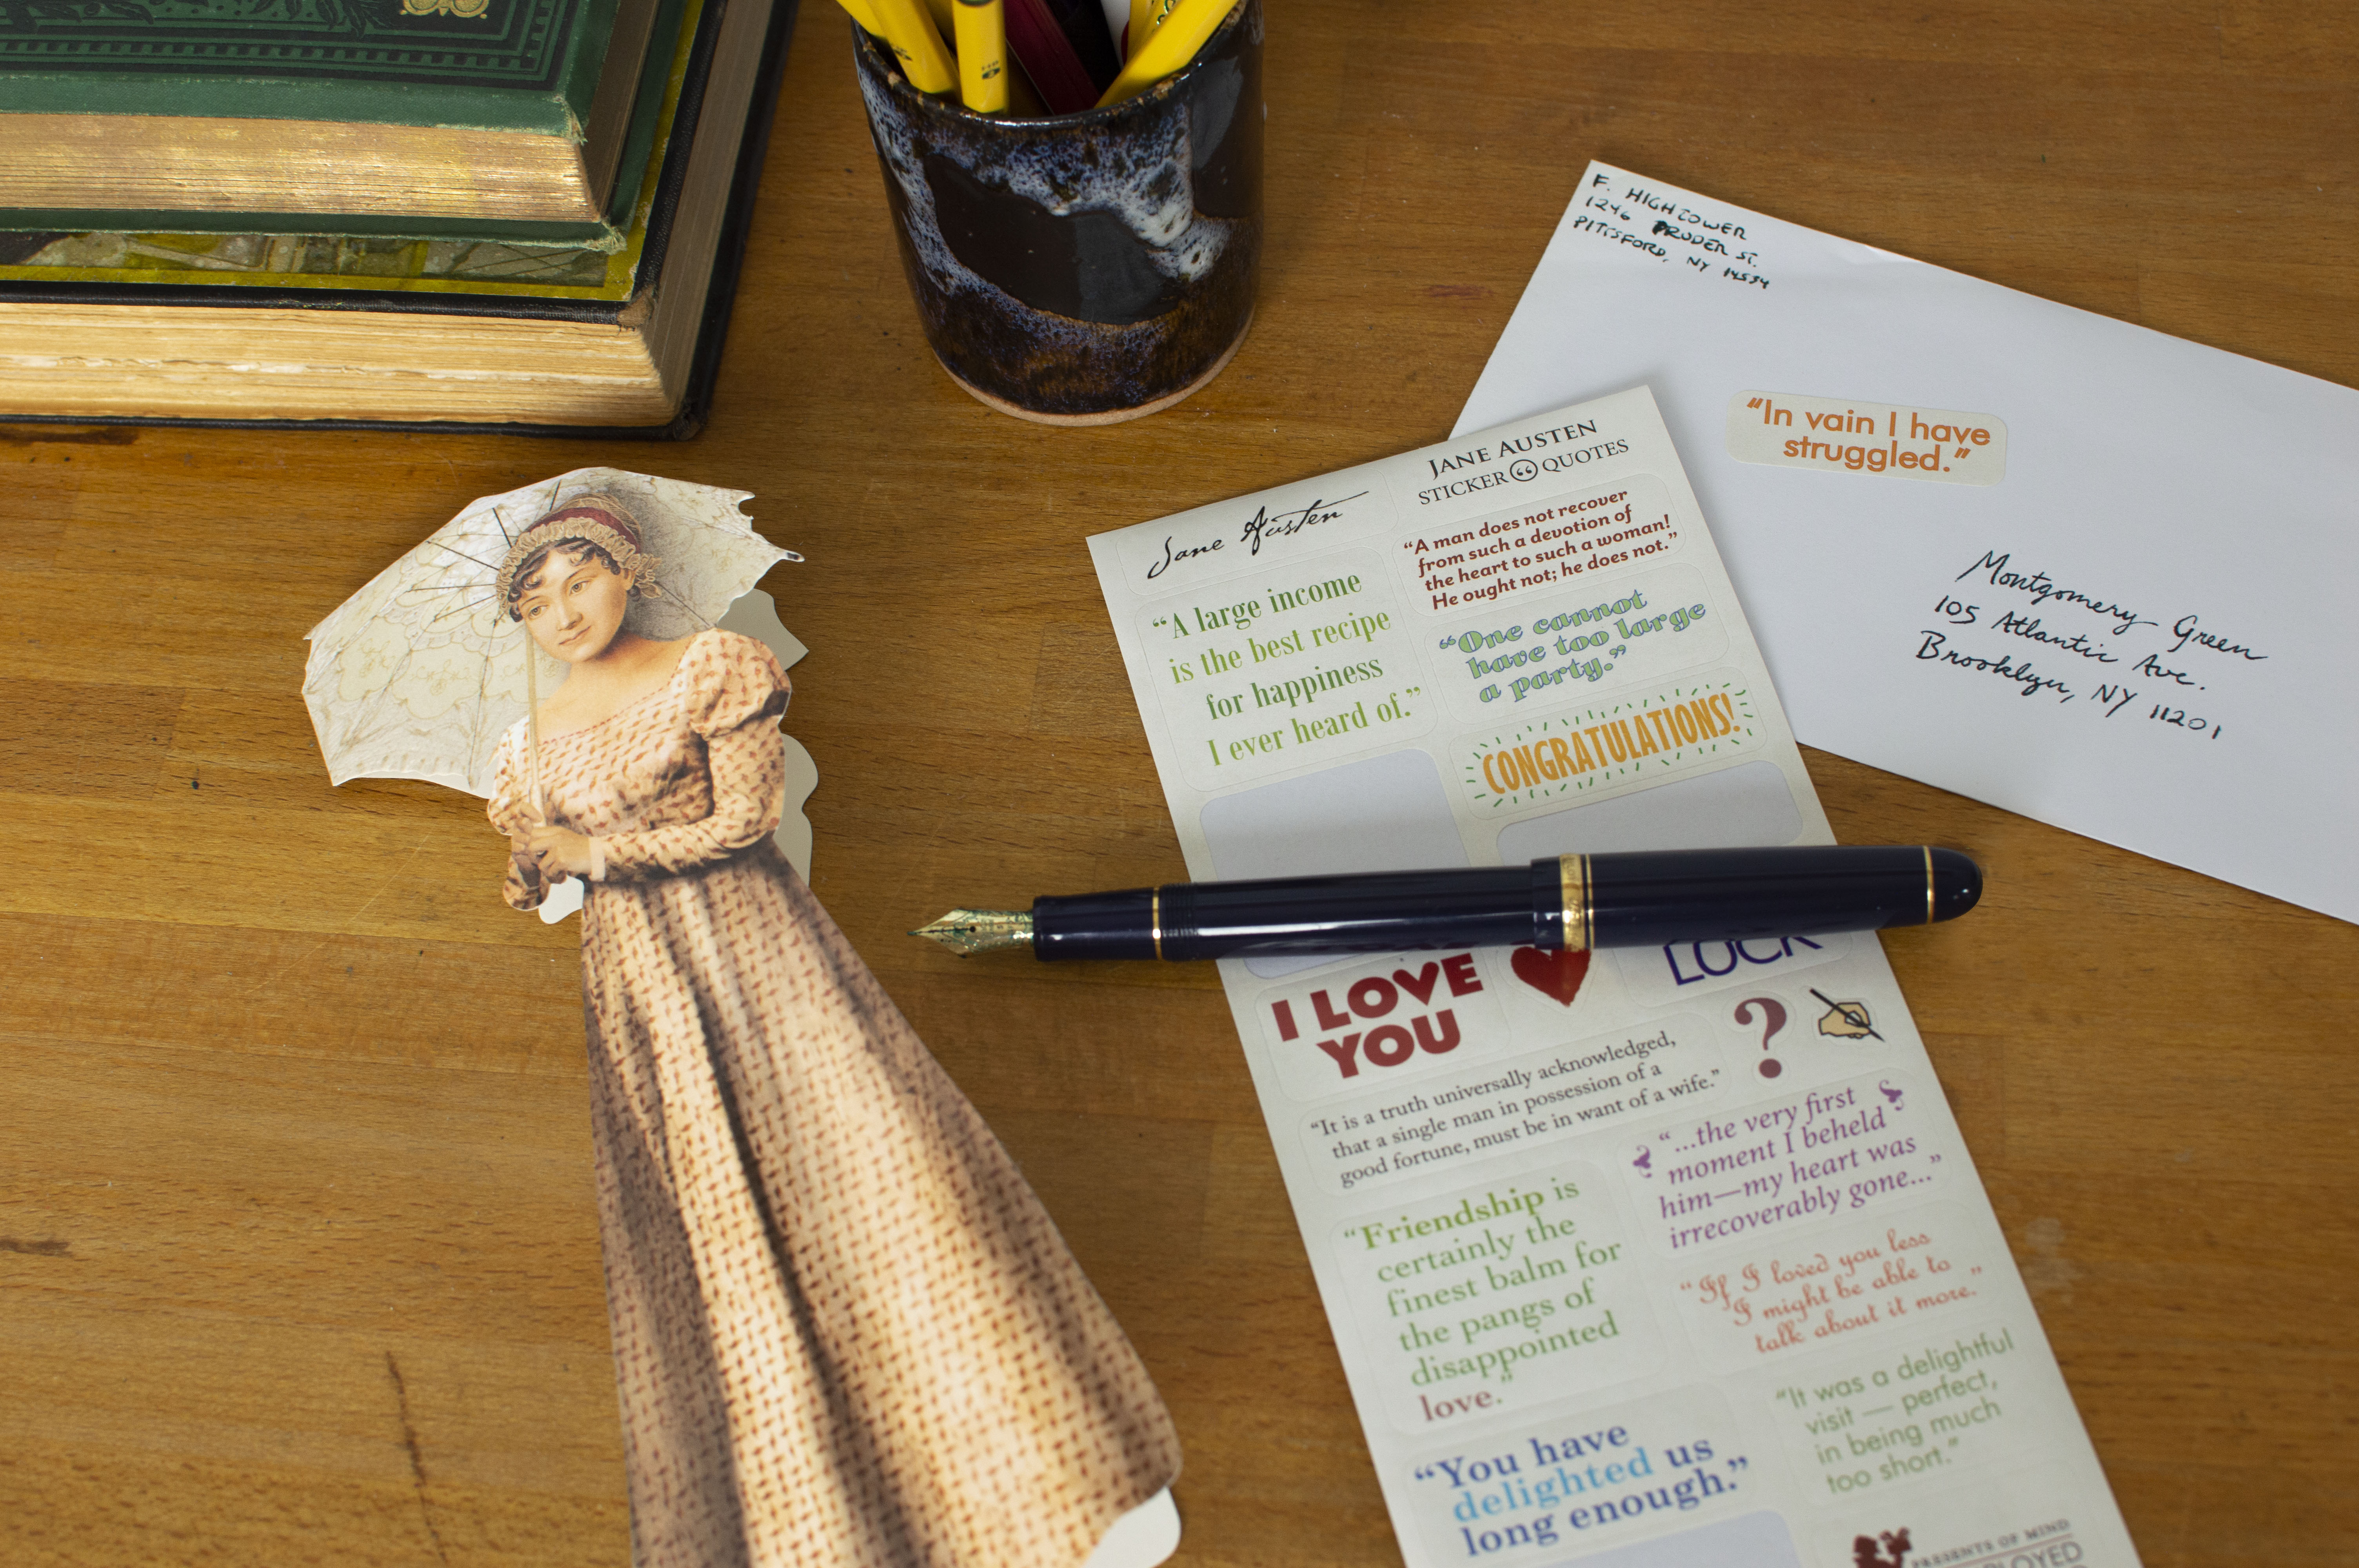 F. HIGHTOWER
1246 PRUDER ST.
PITTSFORD, NY 14534
"In vain I have
struggled."
Montgomery Green
105 Atlantic Ave.
Brooklyn, NY 11201
Jane Austen
JANE AUSTEN
STICKER “ QUOTES
“A large income
is the best recipe
for happiness
I ever heard of.”
“A man does not recover
from such a devotion of
the heart to such a woman!
He ought not; he does not.”
“One cannot
have too large
a party.”
CONGRATULATIONS!
I LOVE
YOU
LUCK
?
“It is a truth universally acknowledged,
that a single man in possession of a
good fortune, must be in want of a wife.”
“...the very first
moment I beheld
him—my heart was
irrecoverably gone...”
“Friendship is
certainly the
finest balm for
the pangs of
disappointed
love.”
“If I loved you less
I might be able to
talk about it more.”
“It was a delightful
visit — perfect,
in being much
too short.”
“You have
delighted us
long enough.”
PRESENTS OF MIND